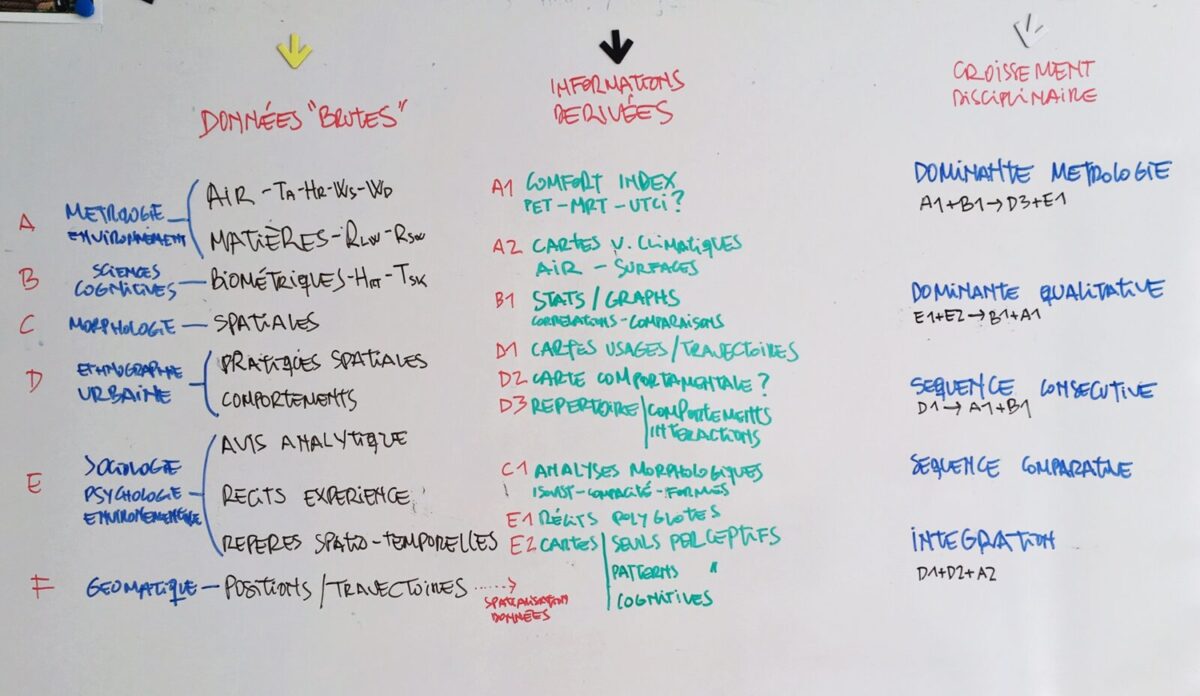 DONNÉES "BRUTES"
A
METROLOGIE
ENVIRONNEMENT
AIR - TA - HR - WS - WD
MATIÈRES - RLW - RSW
B
SCIENCES
COGNITIVES
BIOMÉTRIQUES - HRT - TSK
C
MORPHOLOGIE
SPATIALES
D
ETHNOGRAPHIE
URBAINE
PRATIQUES SPATIALES
COMPORTEMENTS
E
SOCIOLOGIE
PSYCHOLOGIE
ENVIRONEMENTALE
AVIS ANALYTIQUE
RECITS EXPERIENCE
REPERES SPATIO-TEMPORELLES
F
GEOMATIQUE
POSITIONS / TRAJECTOIRES
SPATIALISATION
DONNÉES
INFORMATIONS
DERIVÉES
A1 COMFORT INDEX
PET - MRT - UTCI?
A2 CARTES V. CLIMATIQUES
AIR - SURFACES
B1 STATS / GRAPHS
CORRELATIONS - COMPARAISONS
D1 CARTES USAGES / TRAJECTOIRES
D2 CARTE COMPORTAMENTALE?
D3 REPERTOIRE COMPORTEMENTS
INTERACTIONS
C1 ANALYSES MORPHOLOGIQUES
ISOVIST - COMPACITÉ - FORMES
E1 RÉCITS POLYGLOTES
E2 CARTES SEUILS PERCEPTIFS
PATTERNS "
COGNITIVES
CROISSEMENT
DISCIPLINAIRE
DOMINANTE METROLOGIE
A1+B1→D3+E1
DOMINANTE QUALITATIVE
E1+E2→B1+A1
SEQUENCE CONSECUTIVE
D1→A1+B1
SEQUENCE COMPARATIVE
INTEGRATION
D1+D2+A2